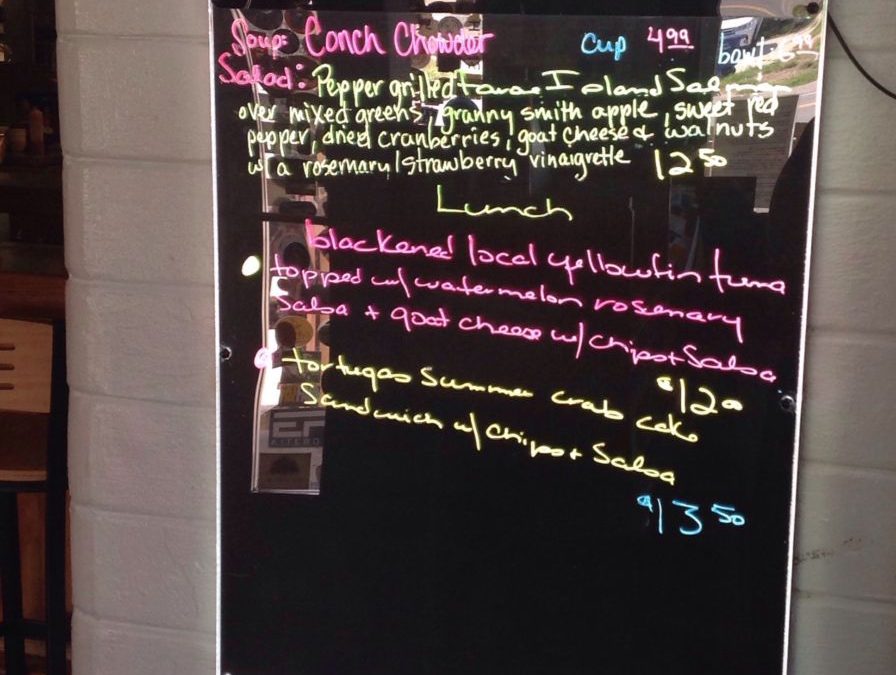 Soup: Conch Chowder Cup 4.99 bowl: 6.99
Salad: Pepper grilled Faroe Island Salmon
over mixed greens, granny smith apple, sweet red
pepper, dried cranberries, goat cheese & walnuts
w/a rosemary/strawberry vinaigrette 12 50
Lunch
blackened local yellowfin tuna
topped w/ watermelon rosemary
Salsa + goat cheese w/ chips + Salsa
$12 00
tortugas Summer crab cake
Sandwich w/ Chips + Salsa
$13 50